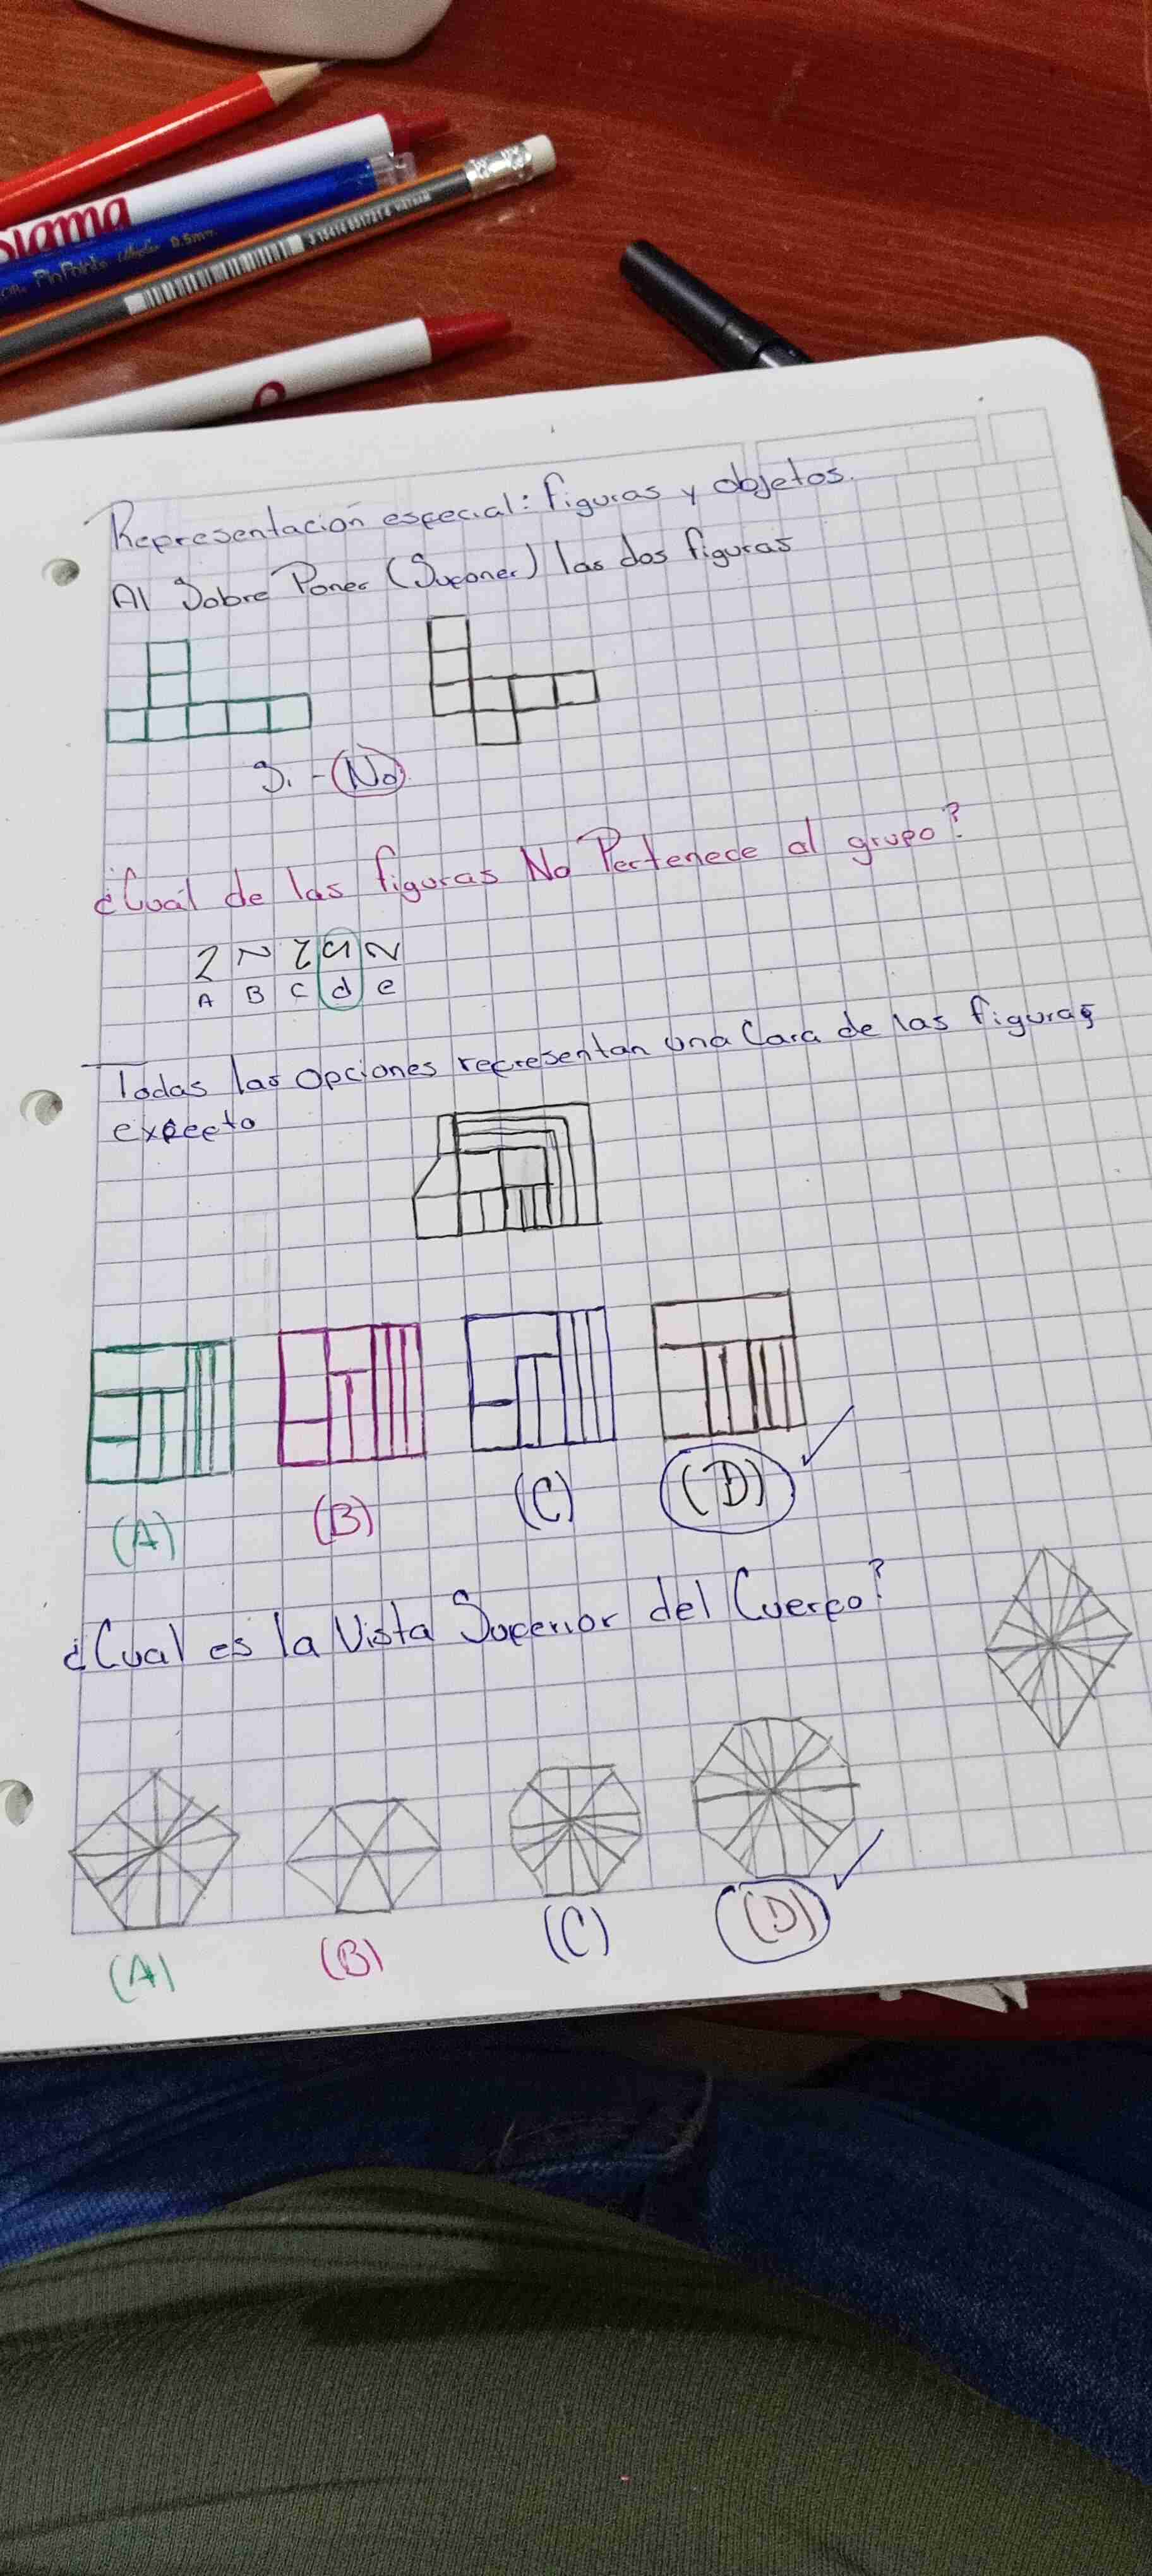 PinPoint
0.5mm
VIETNAM
Representación especial: figuras y objetos.
Al Sobre Poner (Suponer) las dos figuras
Si - No
¿Cuál de las figuras No Pertenece al grupo?
A B C d e
Todas las opciones representan una Cara de las figuras
expecto
(A) (B) (C) (D)
¿Cual es la Vista Superior del Cuerpo?
(A) (B) (C) (D)